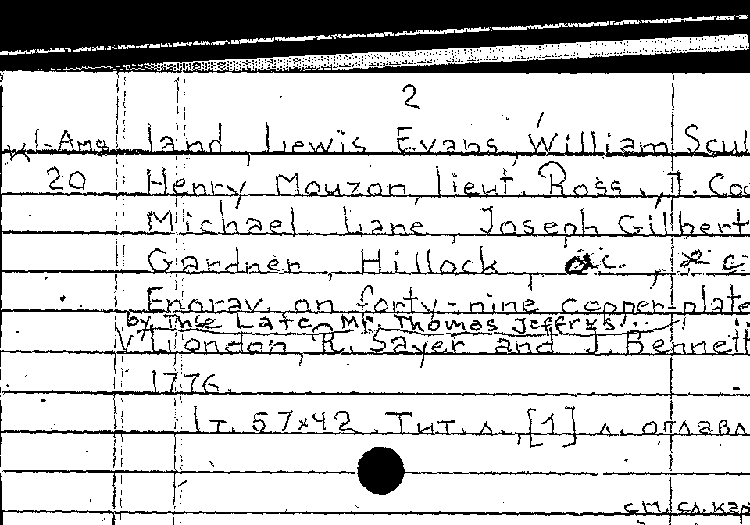 2
l-Ams land, Lewis Evans, William Scul
20 Henry Mouzon, lieut. Ross., J. Coo
Michael Lane, Joseph Gilbert
Gardner, Hillock, &c., &c
Engrav. on forty-nine copper-plate
by the Late Mr. Thomas Jefferys...
London, R. Sayer and J. Bennett
1776.
1 т. 57×42. Тит. л., [1] л. оглавл
см. сл. кар